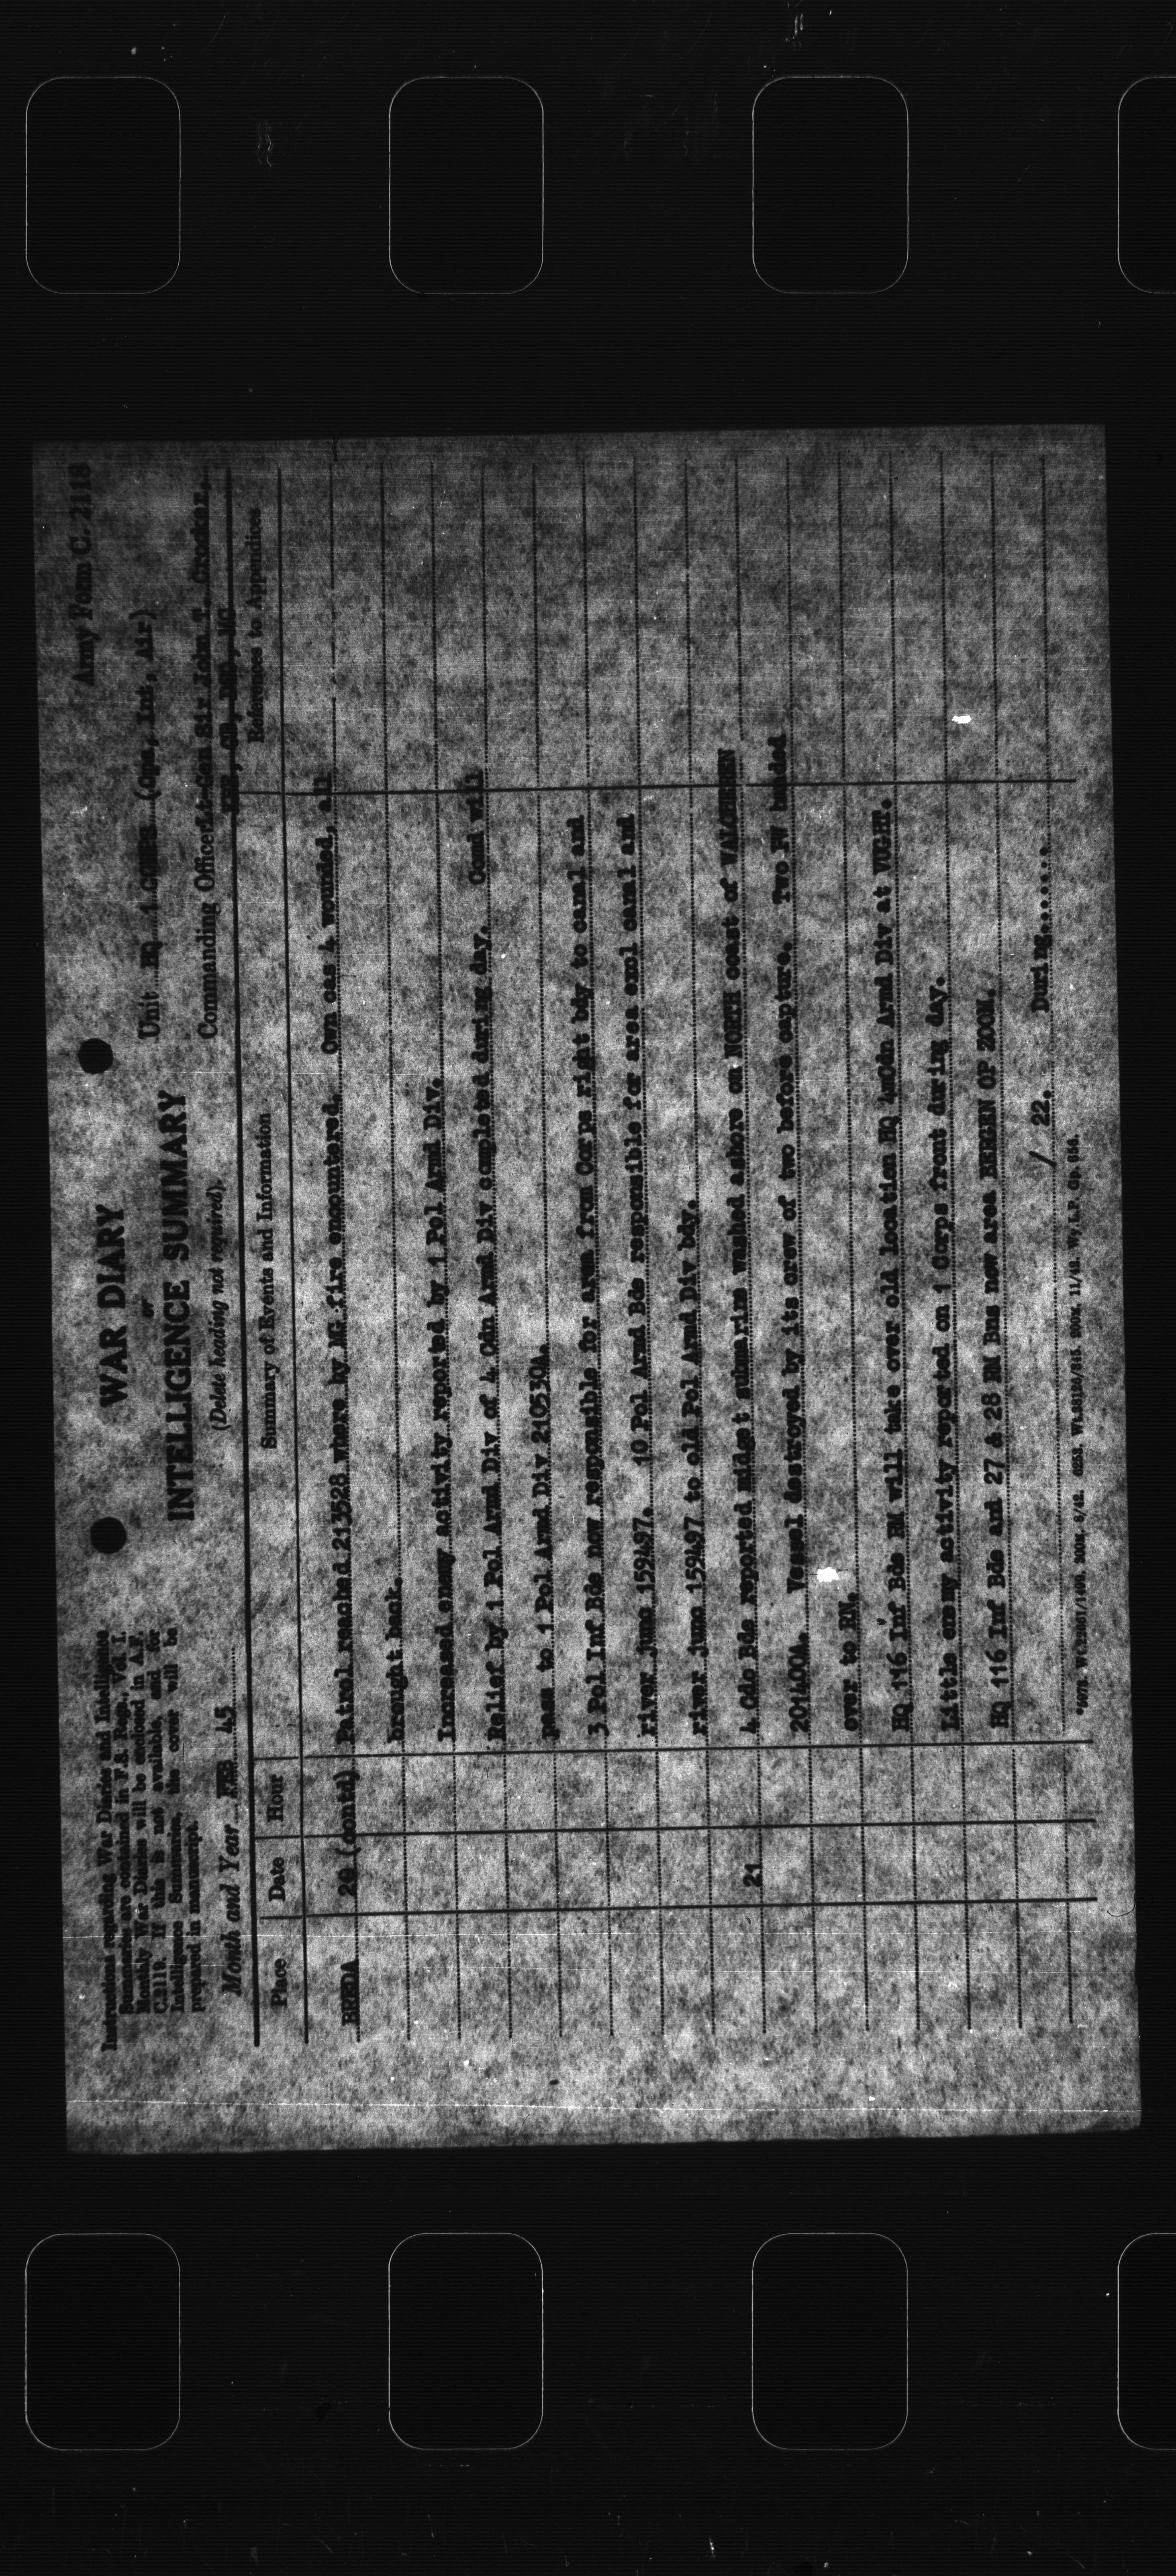 Army Form C. 2118
WAR DIARY
or
INTELLIGENCE SUMMARY
(Delete heading not required).
Instructions regarding War Diaries and Intelligence
Summaries are contained in F.S. Regs., Vol. I.
Monthly War Diaries will be enclosed in A.F.
C.2119. If this is not available, and for
Intelligence Summaries, the cover will be
prepared in manuscript.
Month and Year FEB 45
Unit HQ 1 CORPS (Ops, Int, Air)
Commanding Officer Lt-Gen Sir John T. Crocker,
KBE, CB, DSO, MC
Place Date Hour Summary of Events and Information References to Appendices
BREDA 20 (contd) Patrol reached 213528 where by MG fire encountered. Own cas 4 wounded, all
brought back.
Increased enemy activity reported by 1 Pol Armd Div.
Relief by 1 Pol Armd Div of 4 Cdn Armd Div completed during day. Comd will
pass to 1 Pol Armd Div 210530A.
3 Pol Inf Bde now responsible for area from Corps right bdy to canal and
river junc 159497. 10 Pol Armd Bde responsible for area excl canal and
river junc 159497 to old Pol Armd Div bdy.
21 4 Cdo Bde reported midget submarine washed ashore on NORTH coast of WALCHEREN
201400A. Vessel destroyed by its crew of two before capture. Two PW handed
over to RN.
HQ 116 Inf Bde RM will take over old location HQ 4 Cdn Armd Div at VUGHT.
Little enemy activity reported on 1 Corps front during day.
HQ 116 Inf Bde and 27 & 28 RM Bns now area BERGEN OP ZOOM.
/ 22. During.......